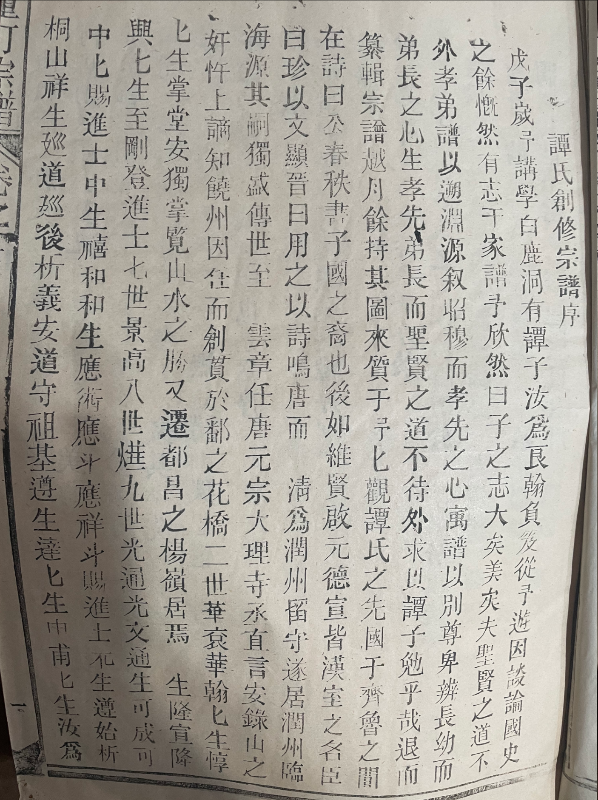 譚氏創修宗譜序
戊子歲予講學白鹿洞有譚子汝爲良翰負笈從予遊因談論國史
之餘慨然有志于家譜予欣然曰子之志大矣美矣夫聖賢之道不
外孝弟譜以遡淵源叙昭穆而孝先之心寓譜以別尊卑辨長幼而
弟長之心生孝先弟長而聖賢之道不待外求以譚子勉乎哉退而
纂輯宗譜越月餘持其圖來質于予匕觀譚氏之先國于齊魯之間
在詩曰公春秋書子國之裔也後如維賢啟元德宣皆漢室之名臣
曰珍以文顯晉曰用之以詩鳴唐而 清爲潤州留守遂居潤州臨
海源其嗣獨盛傳世至 雲章任唐元宗大理寺丞直言安錄山之
奸忤上謫知饒州因任而創貫於鄱之花橋二世華衮華翰匕生惇
匕生掌堂安獨掌覧山水之勝又遷都昌之楊嶺居焉 生隆宣降
興匕生至剛登進士七世景高八世煃九世光逼光文通生可成可
中匕賜進士中生禧和和生應術應斗應祥斗賜進士元生遵始析
桐山祥生廵道廵後析義安道守祖基遵生達匕生中甫匕生汝爲
重丁宗譜
卷之
一